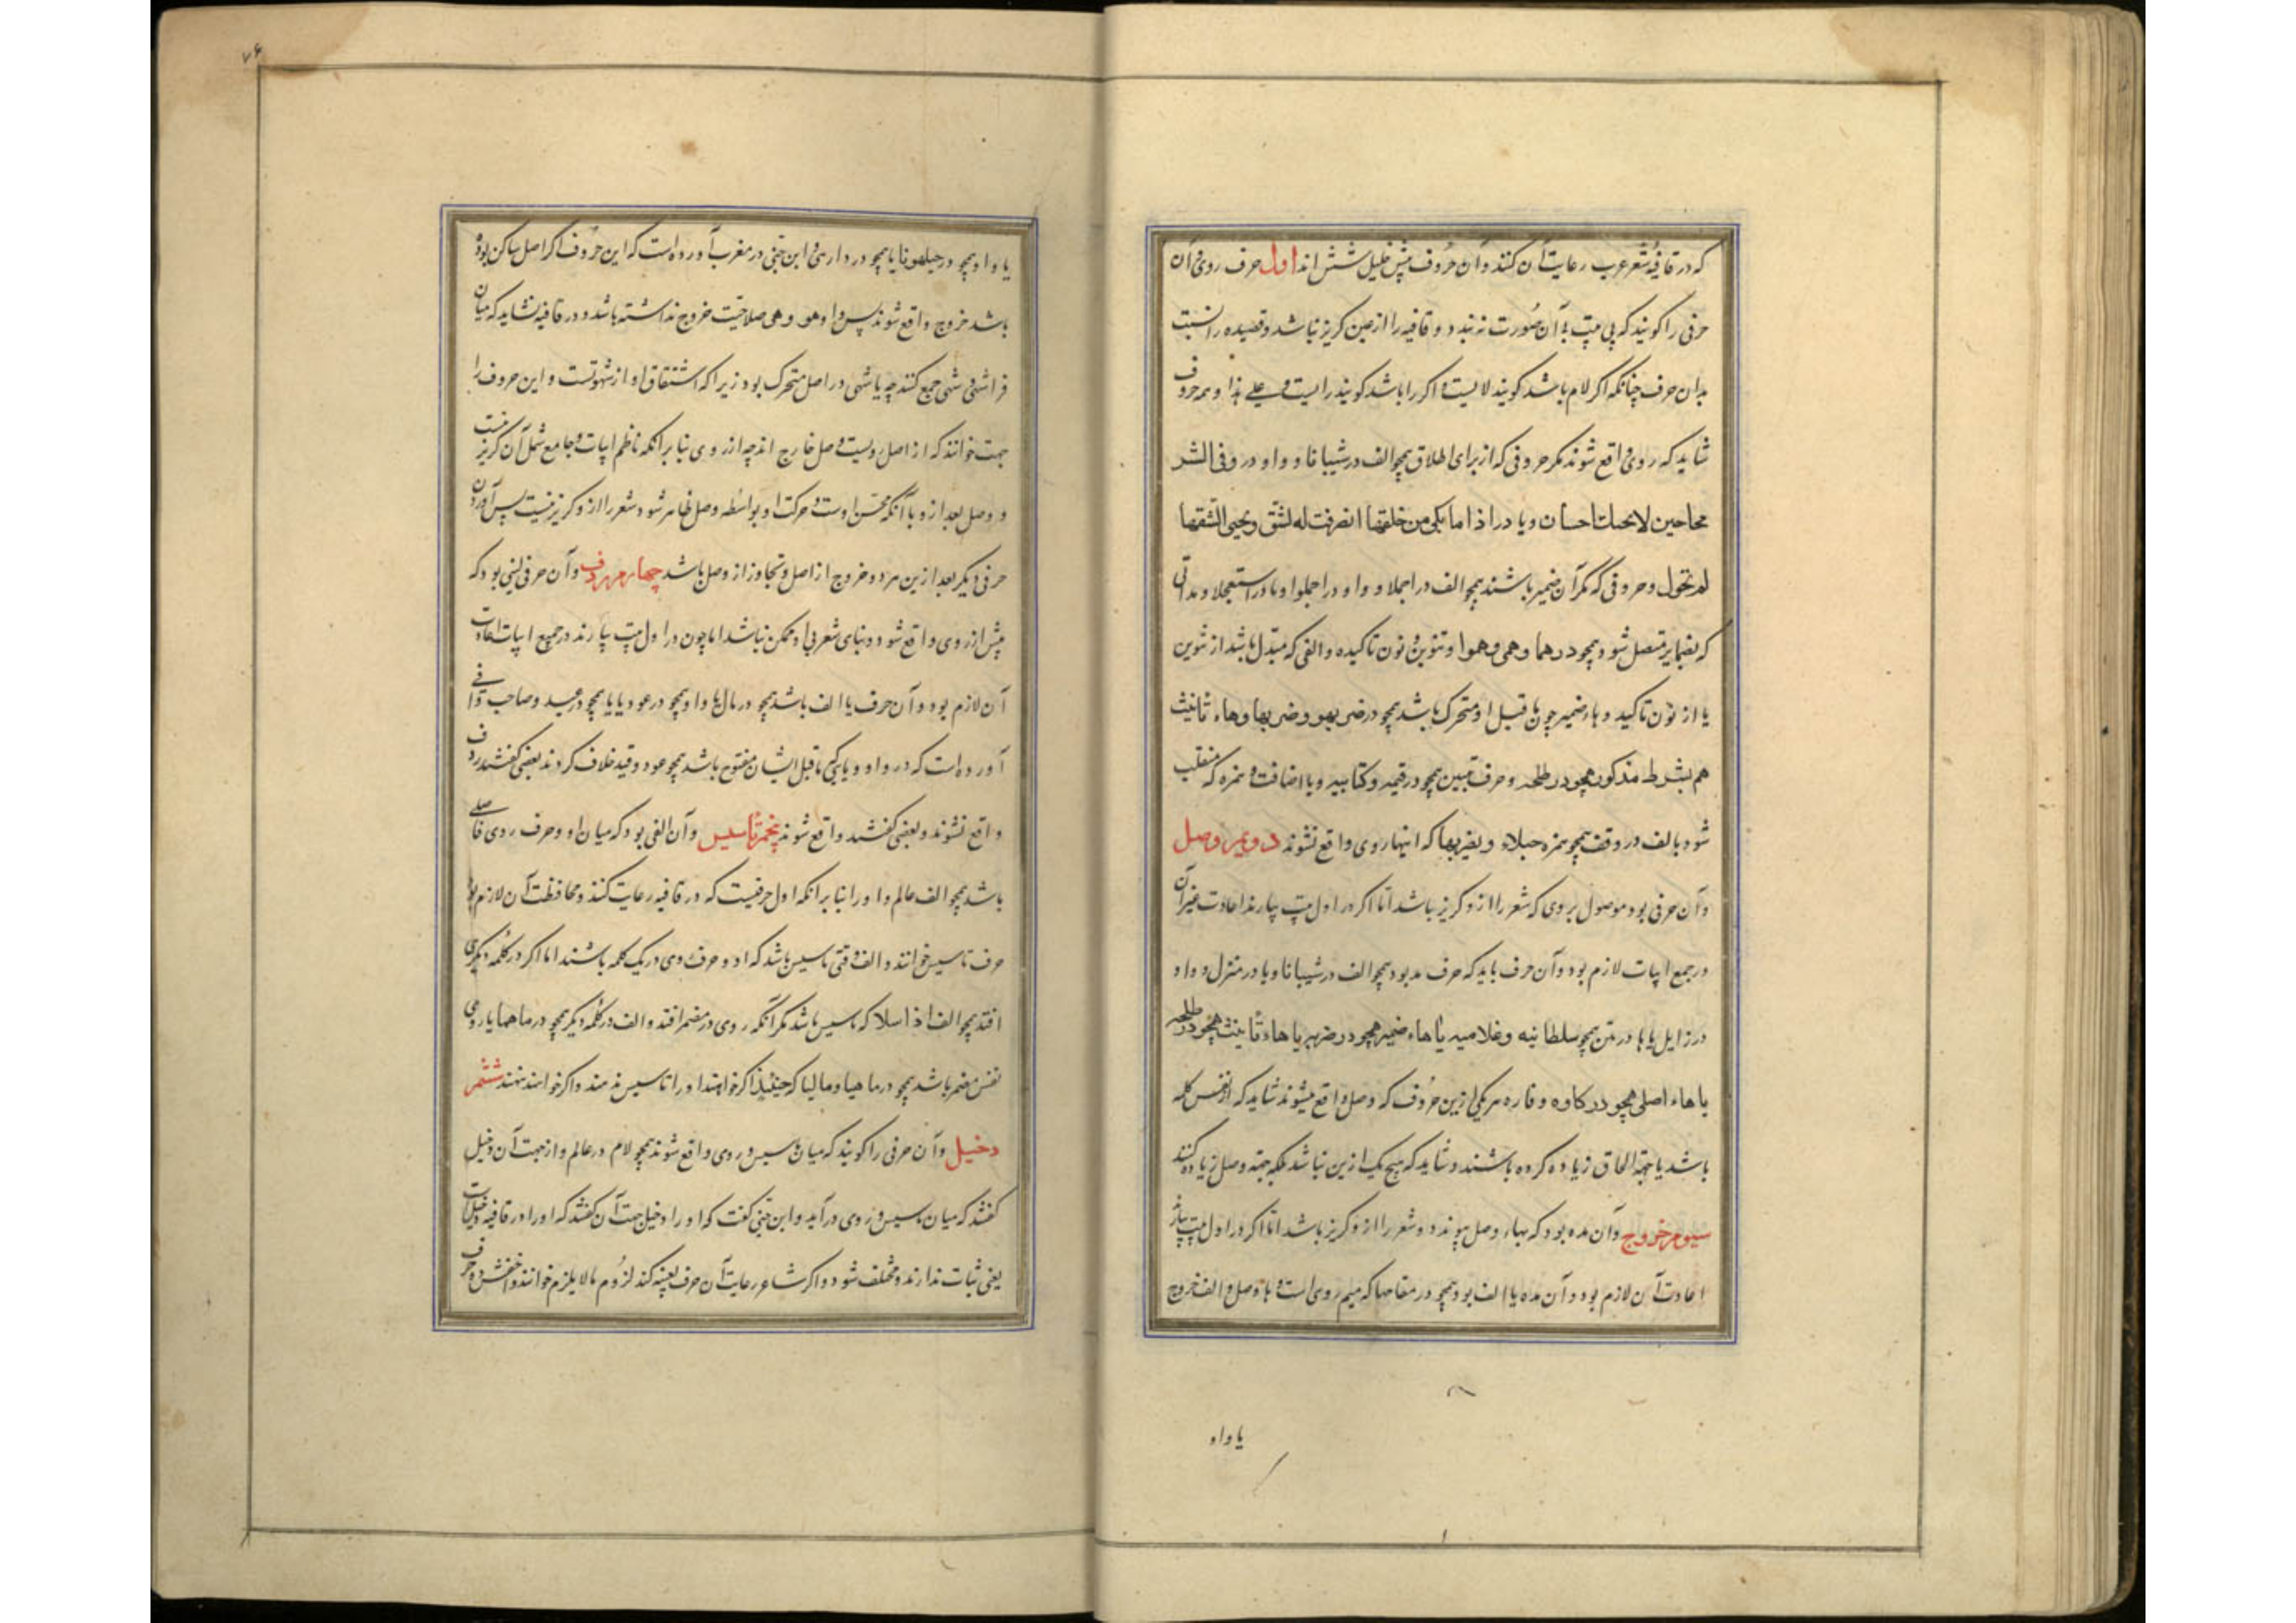 که در قافیه شعر عرب رعایت آن کنند و آن حروف پیش خلیل شش اند اول حرف روی و آن
حرفی را گویند که بی بیت به آن صورت نه بندد و قافیه را از من گریز نباشد و قصیده را نسبت
بدان حرف چنانکه اگر لام باشد گویند لامیست و اگر را باشد گویند رائیست و علی هذا و همه حروف
شاید که روی واقع شوند مگر حروفی که از برای اطلاق همچو الف در شیبانا و واو در وفی الشر
محاحین لا و یا در اذا ما بکی من خلقها انصرفت له بشق و یحیی الشقها
لم تحول و حروفی که مگر آن ضمیر باشند همچو الف در اجملا و واو در اجملوا و یا در استعجلا و
که بضمایر متصل شود همچو در هما و همی و هموا و تنوین و نون تاکیده و الفی که مبدل باشد از تنوین
یا از نون تاکید و هاء ضمیر چون ما قبل او متحرک باشد همچو در ضربهو و ضربها و هاء تانیث
هم بشرط مذکور همچو در طلحه و حرف تبیین همچو در قیمه و کتابیه و یا اضافت و همزه که منقلب
شود بالف در وقف همچو همزه حبلاء و یضربها که اینها روی واقع نشوند دویم وصل
و آن حرفی بود موصول بروی که شعر را از و گریز باشد اما اگر در اول بیت بیارند اعادت غیر آن
در جمع ابیات لازم بود و آن حرف باید که حرف مد بود همچو الف در شیبانا و یا در منزل و واو
در زایل یا ها در متن همچو سلطانیه و غلامیه یا هاء ضمیر همچو در ضربه یا هاء تانیث همچو در طلحه
یا هاء اصلی همچو در کاوه و فاره هر یکی ازین حروف که وصل واقع میشوند شاید که از نفس کلمه
باشد یا بجهة الحاق زیاده کرده باشند و شاید که هیچ یک ازین نباشد بلکه بجهة وصل زیاده کنند
سیوم خروج و آن مده بود که بهاء وصل پیوندد و شعر را از و گریز باشد اما اگر در اول بیت بیارند
اعادت آن لازم بود و آن مده یا الف بود همچو در مقامها که میم روی است و ها وصل و الف خروج
یا واو
۷۶
یا واو همچو در حبلهونا یا یا همچو در دارهی و ابن جنی در مغرب آورده است که این حروف اگر اصل ساکن بوده
باشد خروج واقع شوند پس واو هو و هی صلاحیت خروج نداشته باشد و در قافیه نشاید که میان
فراشهی و شهی جمع کنند چه یا شهی در اصل متحرک بود زیرا که اشتقاق او از شهوتست و این حروف را
جهت خوانند که از اصل رویست و وصل خارج اند چه از روی بنا بر آنکه ناظم ابیات و جامع شمل آن گریز نیست
و وصل بعد ازو با آنکه محسن اوست و حرکت او بواسطه وصل ظاهر شود شعر را از و گریز نیست پس آوردن
حرفی دیگر بعد ازین هر دو خروج از اصل و تجاوز از وصل باشد چهارم ردف و آن حرفی لینی بود که
پیش از روی واقع شود و بنای شعر بی او ممکن نباشد اما چون در اول بیت بیارند در جمیع ابیات اعادت
آن لازم بود و آن حرف یا الف باشد همچو در مال یا واو همچو در عود یا یا همچو در عید و صاحب وافی
آورده است که در واو و یایی که ماقبل ایشان مفتوح باشد همچو عود و قید خلاف کردند بعضی گفتند ردف
واقع نشوند و بعضی گفتند واقع شوند پنجم تاسیس و آن الفی بود که میان او و حرف روی فاصلی
باشد همچو الف عالم و او را بنا بر آنکه اول حرفیست که در قافیه رعایت کنند و محافظت آن لازم بود
حرف تاسیس خوانند و الف وقتی تاسیس باشد که او و حرف روی در یک کلمه باشند اما اگر در کلمه دیگری
افتد همچو الف اذا سلا که تاسیس باشد مگر آنگه روی در مضمر افتد و الف در کلمه دیگر همچو در ماهما یا روی
نفس مضمر باشد همچو در ماهیا و مالیا که حینئذ اگر خواهند او را تاسیس نهند و اگر خواهند ننهند ششم
دخیل و آن حرفی را گویند که میان تاسیس و روی واقع شوند همچو لام در عالم و از جهت آن دخیل
گفتند که میان تاسیس و روی درآید و ابن جنی گفت که او را دخیل جهت آن گفتند که او را در قافیه دخیلیات
یعنی ثبات ندارند و مختلف شود و اگر شاعر رعایت آن حرف بعینه کند لزوم مالا یلزم خوانند و اخفش دو حرف